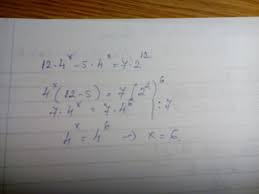 12·4ˣ-5·4ˣ=7·2¹²
4ˣ(12-5)=7(2²)⁶
7·4ˣ=7·4⁶ |:7
4ˣ=4⁶ → x=6